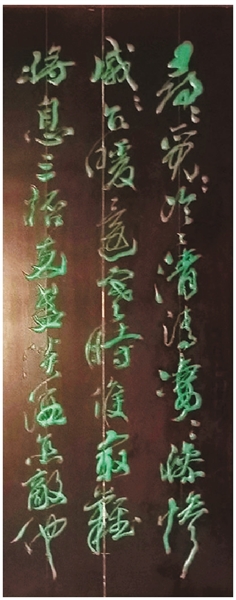 尋〻覓〻冷〻清清凄〻慘慘
戚〻乍暖還寒時候最難
將息三杯兩盞淡酒怎敵他